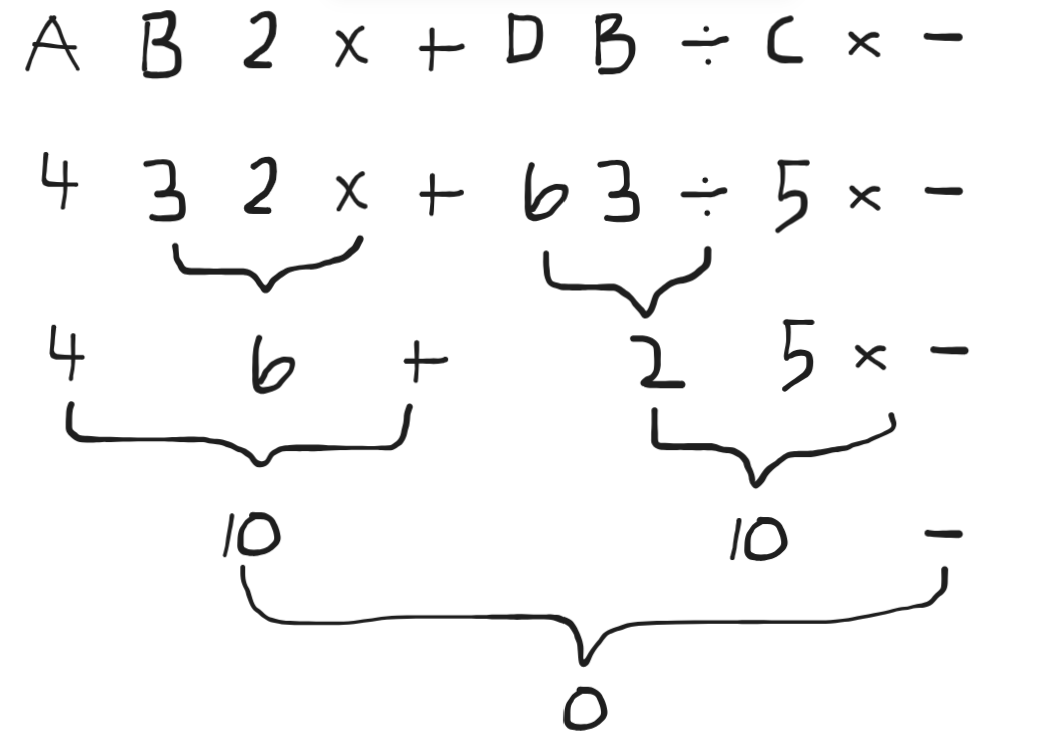 A B 2 × + D B ÷ C × −
4 3 2 × + 6 3 ÷ 5 × −
4 6 + 2 5 × −
10 10 −
0